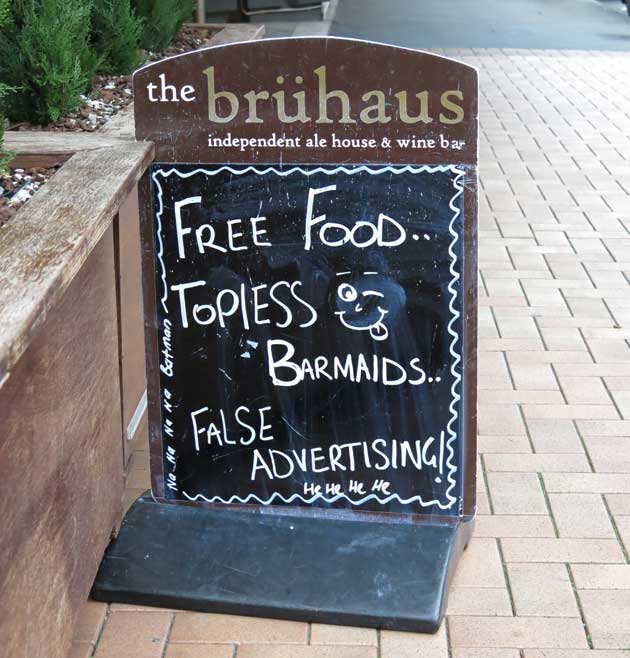 the brühaus
independent ale house & wine bar
FREE FOOD..
TOPlESS
BARMAIDS..
FALSE
ADVERTISING!
He He He He
Na Na Na Na Batman